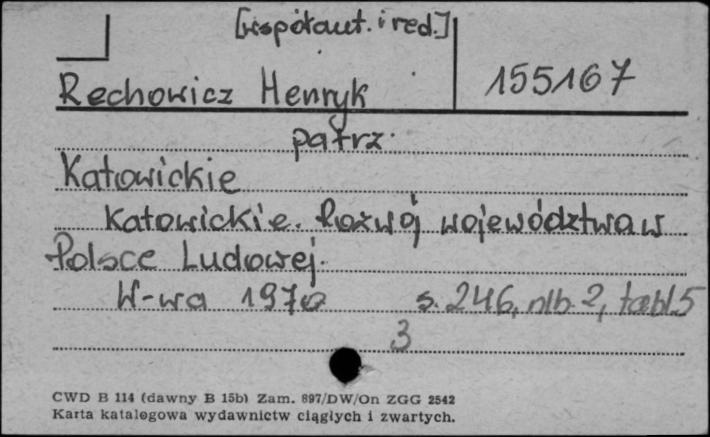 [współaut. i red.]
Rechowicz Henryk
155167
patrz
Katowickie
Katowickie. Rozwój województwa w
Polsce Ludowej.
W-wa 1970 s. 246, nlb. 2, tabl. 5
3
CWD B 114 (dawny B 15b) Zam. 897/DW/On ZGG 2542
Karta katalogowa wydawnictw ciągłych i zwartych.